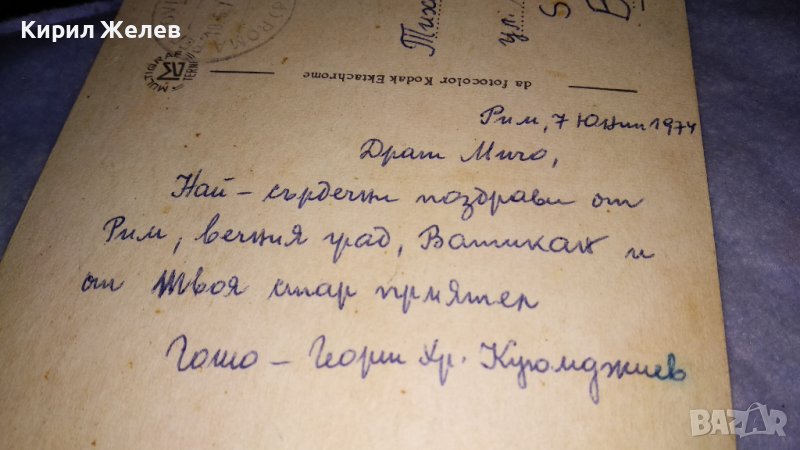 Кирил Желев
ROMA
MULTIGRAF
TERNI
Тих
ул.
S
da fotocolor Kodak Ektachrome
Рим, 7 Юни 1974
Драги Мичо,
Най-сърдечни поздрави от
Рим, вечния град, Ватикан и
от твоя стар приятел
Гошо - Георги Хр. Куюмджиев
BAZAR